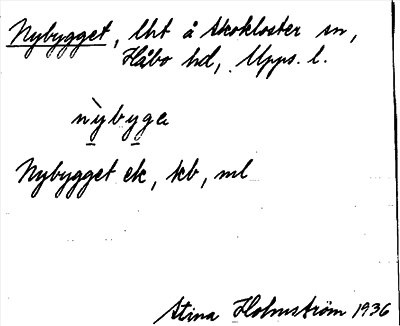 Nybygget, lht å Skokloster sn,
Håbo hd, Upps. l.
nỳbyge
Nybygget ek, kb, ml
Stina Holmström 1936